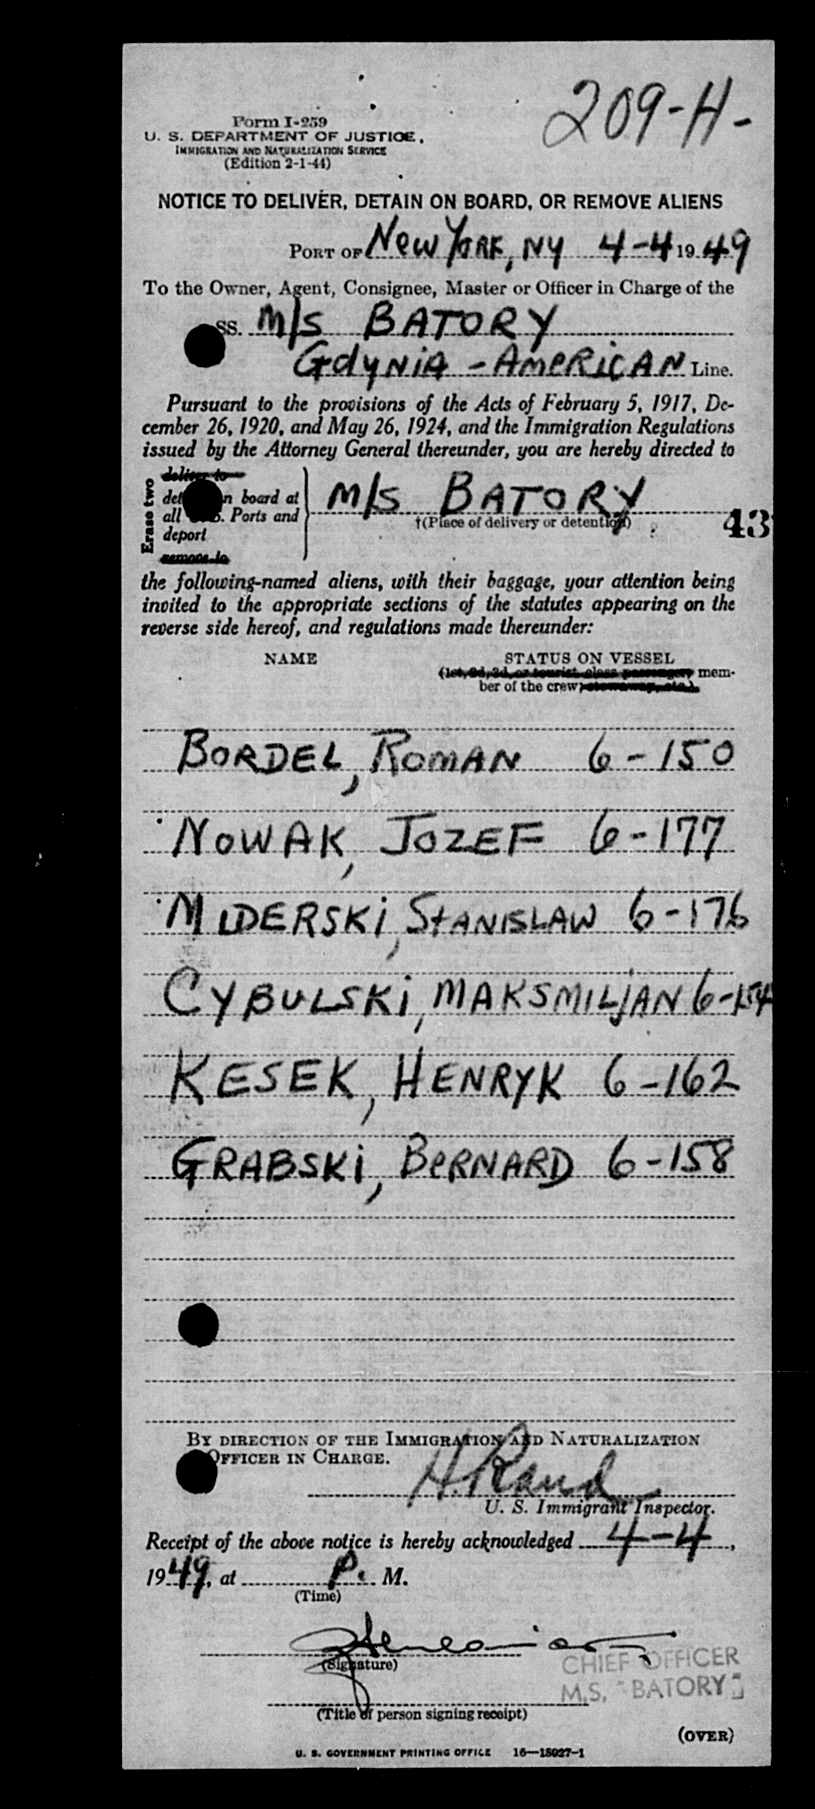 209-H-
Form I-259
U. S. DEPARTMENT OF JUSTICE,
IMMIGRATION AND NATURALIZATION SERVICE
(Edition 2-1-44)
NOTICE TO DELIVER, DETAIN ON BOARD, OR REMOVE ALIENS
PORT OF New York, NY 4-4 1949
To the Owner, Agent, Consignee, Master or Officer in Charge of the
SS. M/S BATORY
Gdynia - American Line.
Pursuant to the provisions of the Acts of February 5, 1917, De-
cember 26, 1920, and May 26, 1924, and the Immigration Regulations
issued by the Attorney General thereunder, you are hereby directed to
Erase two
deliver to
n board at
all Ports and
deport
remove to
M/S BATORY
†(Place of delivery or detention)
43
the following-named aliens, with their baggage, your attention being
invited to the appropriate sections of the statutes appearing on the
reverse side hereof, and regulations made thereunder:
NAME STATUS ON VESSEL
(1st, 2d, 3d, or tourist class passenger, mem-
ber of the crew, stowaway, etc.)
BORDEL, ROMAN 6-150
NOWAK, JOZEF 6-177
MIDERSKI, STANISLAW 6-176
CYBULSKI, MAKSMILJAN 6-154
KESEK, HENRYK 6-162
GRABSKI, BERNARD 6-158
BY DIRECTION OF THE IMMIGRATION AND NATURALIZATION
OFFICER IN CHARGE.
H. Rand
U. S. Immigrant Inspector.
Receipt of the above notice is hereby acknowledged 4-4,
1949, at P. M.
(Time)
(Signature)
CHIEF OFFICER
M.S. "BATORY"
(Title of person signing receipt)
(OVER)
U. S. GOVERNMENT PRINTING OFFICE 16—18027-1